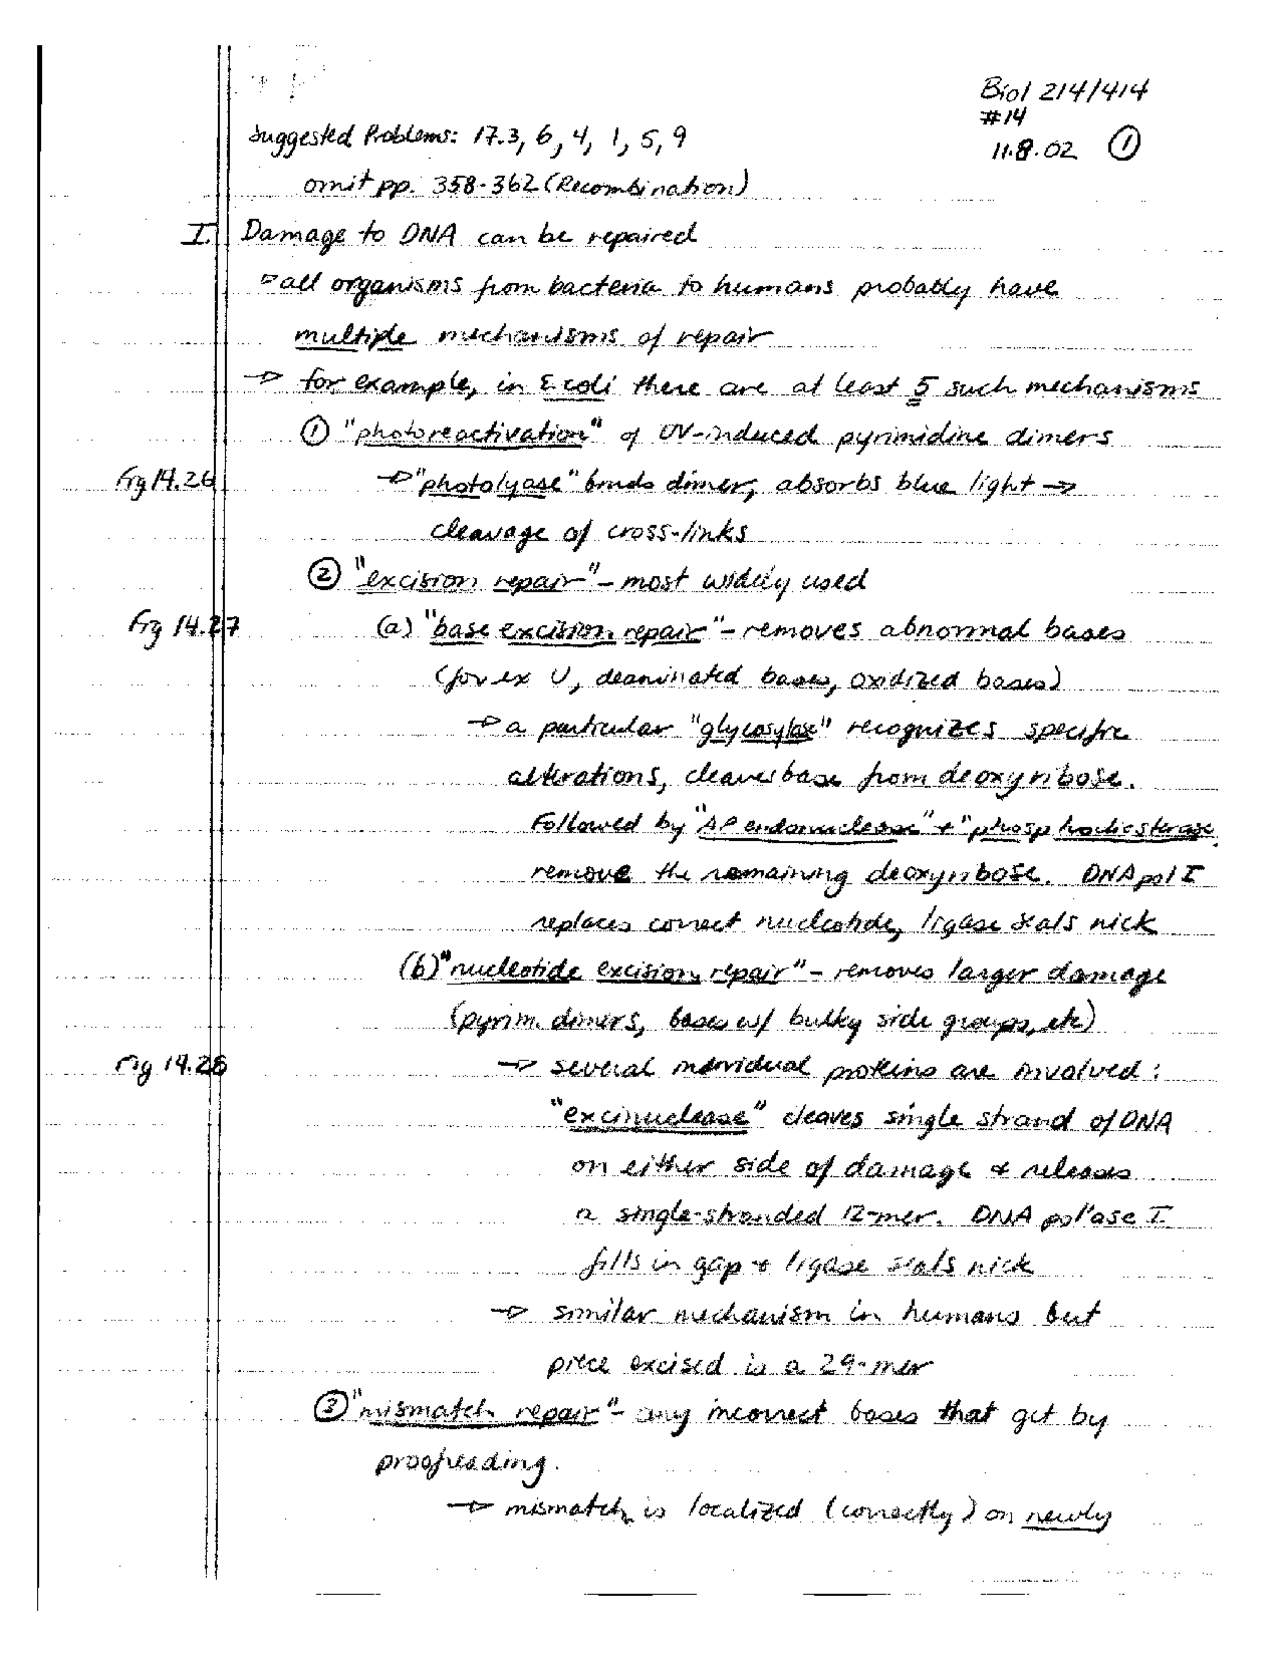 Biol 214/414
#14
11.8.02 ①
Suggested Problems: 17.3, 6, 4, 1, 5, 9
omit pp. 358-362 (Recombination)
I. Damage to DNA can be repaired
→ all organisms from bacteria to humans probably have
multiple mechanisms of repair
→ for example, in E. coli there are at least 5 such mechanisms
① "photoreactivation" of UV-induced pyrimidine dimers
Fig 14.26 → "photolyase" binds dimer, absorbs blue light →
cleavage of cross-links
② "excision repair" - most widely used
Fig 14.27 (a) "base excision repair" - removes abnormal bases
(for ex U, deaminated bases, oxidized bases)
→ a particular "glycosylase" recognizes specific
alterations, cleaves base from deoxyribose.
Followed by "AP endonuclease" + "phosphodiesterase
remove the remaining deoxyribose. DNA pol I
replaces correct nucleotide, ligase seals nick
(b) "nucleotide excision repair" - removes larger damage
(pyrim. dimers, bases w/ bulky side groups, etc)
Fig 14.28 → several individual proteins are involved:
"excinuclease" cleaves single strand of DNA
on either side of damage & releases
a single-stranded 12-mer. DNA pol'ase I
fills in gap & ligase seals nick
→ similar mechanism in humans but
piece excised is a 29-mer
③ "mismatch repair" - any incorrect bases that get by
proofreading.
→ mismatch is localized (correctly) on newly